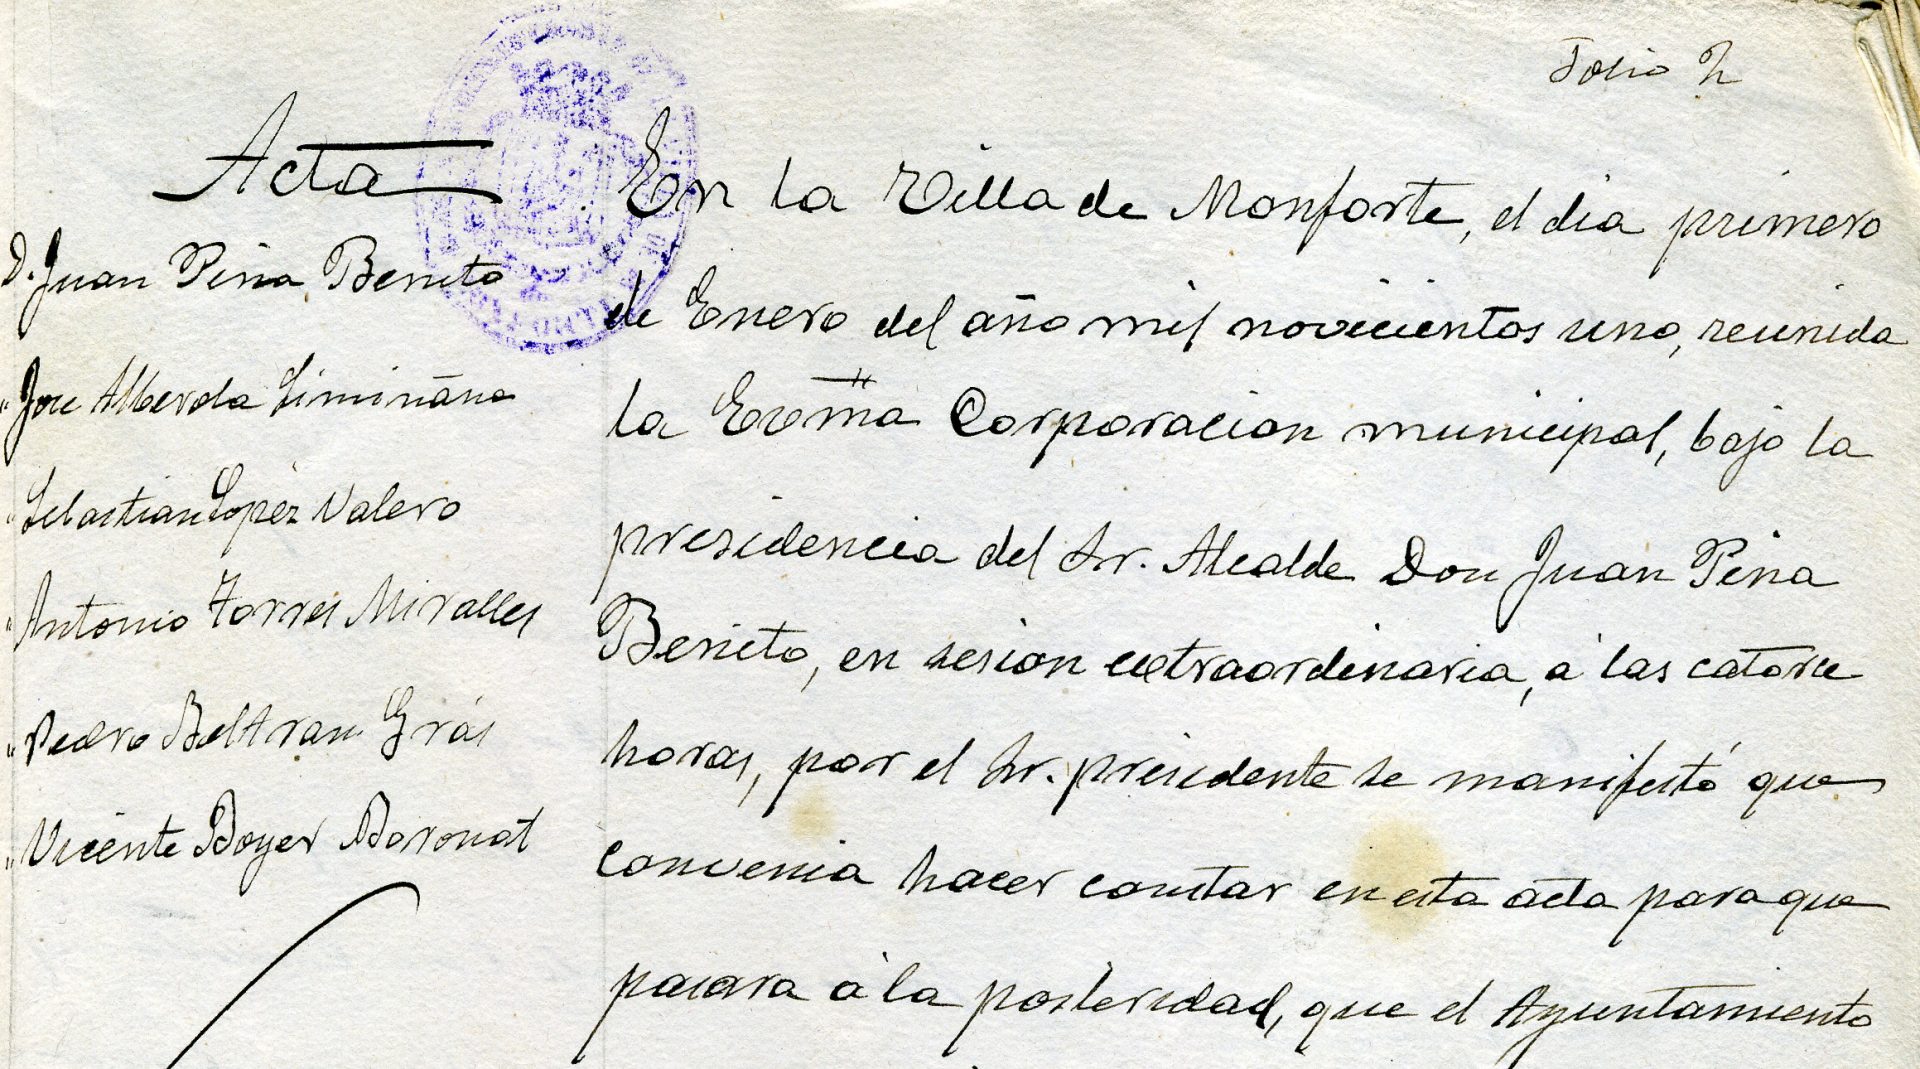 Folio 2
Acta
D. Juan Pina Benito
" Jose Alberola Simiñana
" Sebastian Lopéz Valero
" Antonio Torres Miralles
" Pedro Beltran Grás
" Vicente Boyer Boronat
En la Villa de Monforte, el dia primero
de Enero del año mil novicientos uno, reunida
la Excma Corporacion municipal, bajo la
presidencia del Sr. Alcalde Don Juan Pina
Benito, en sesion extraordinaria, á las catorce
horas, por el Sr. presidente se manifestó que
convenia hacer constar en esta acta para que
pasara á la posteridad, que el Ayuntamiento